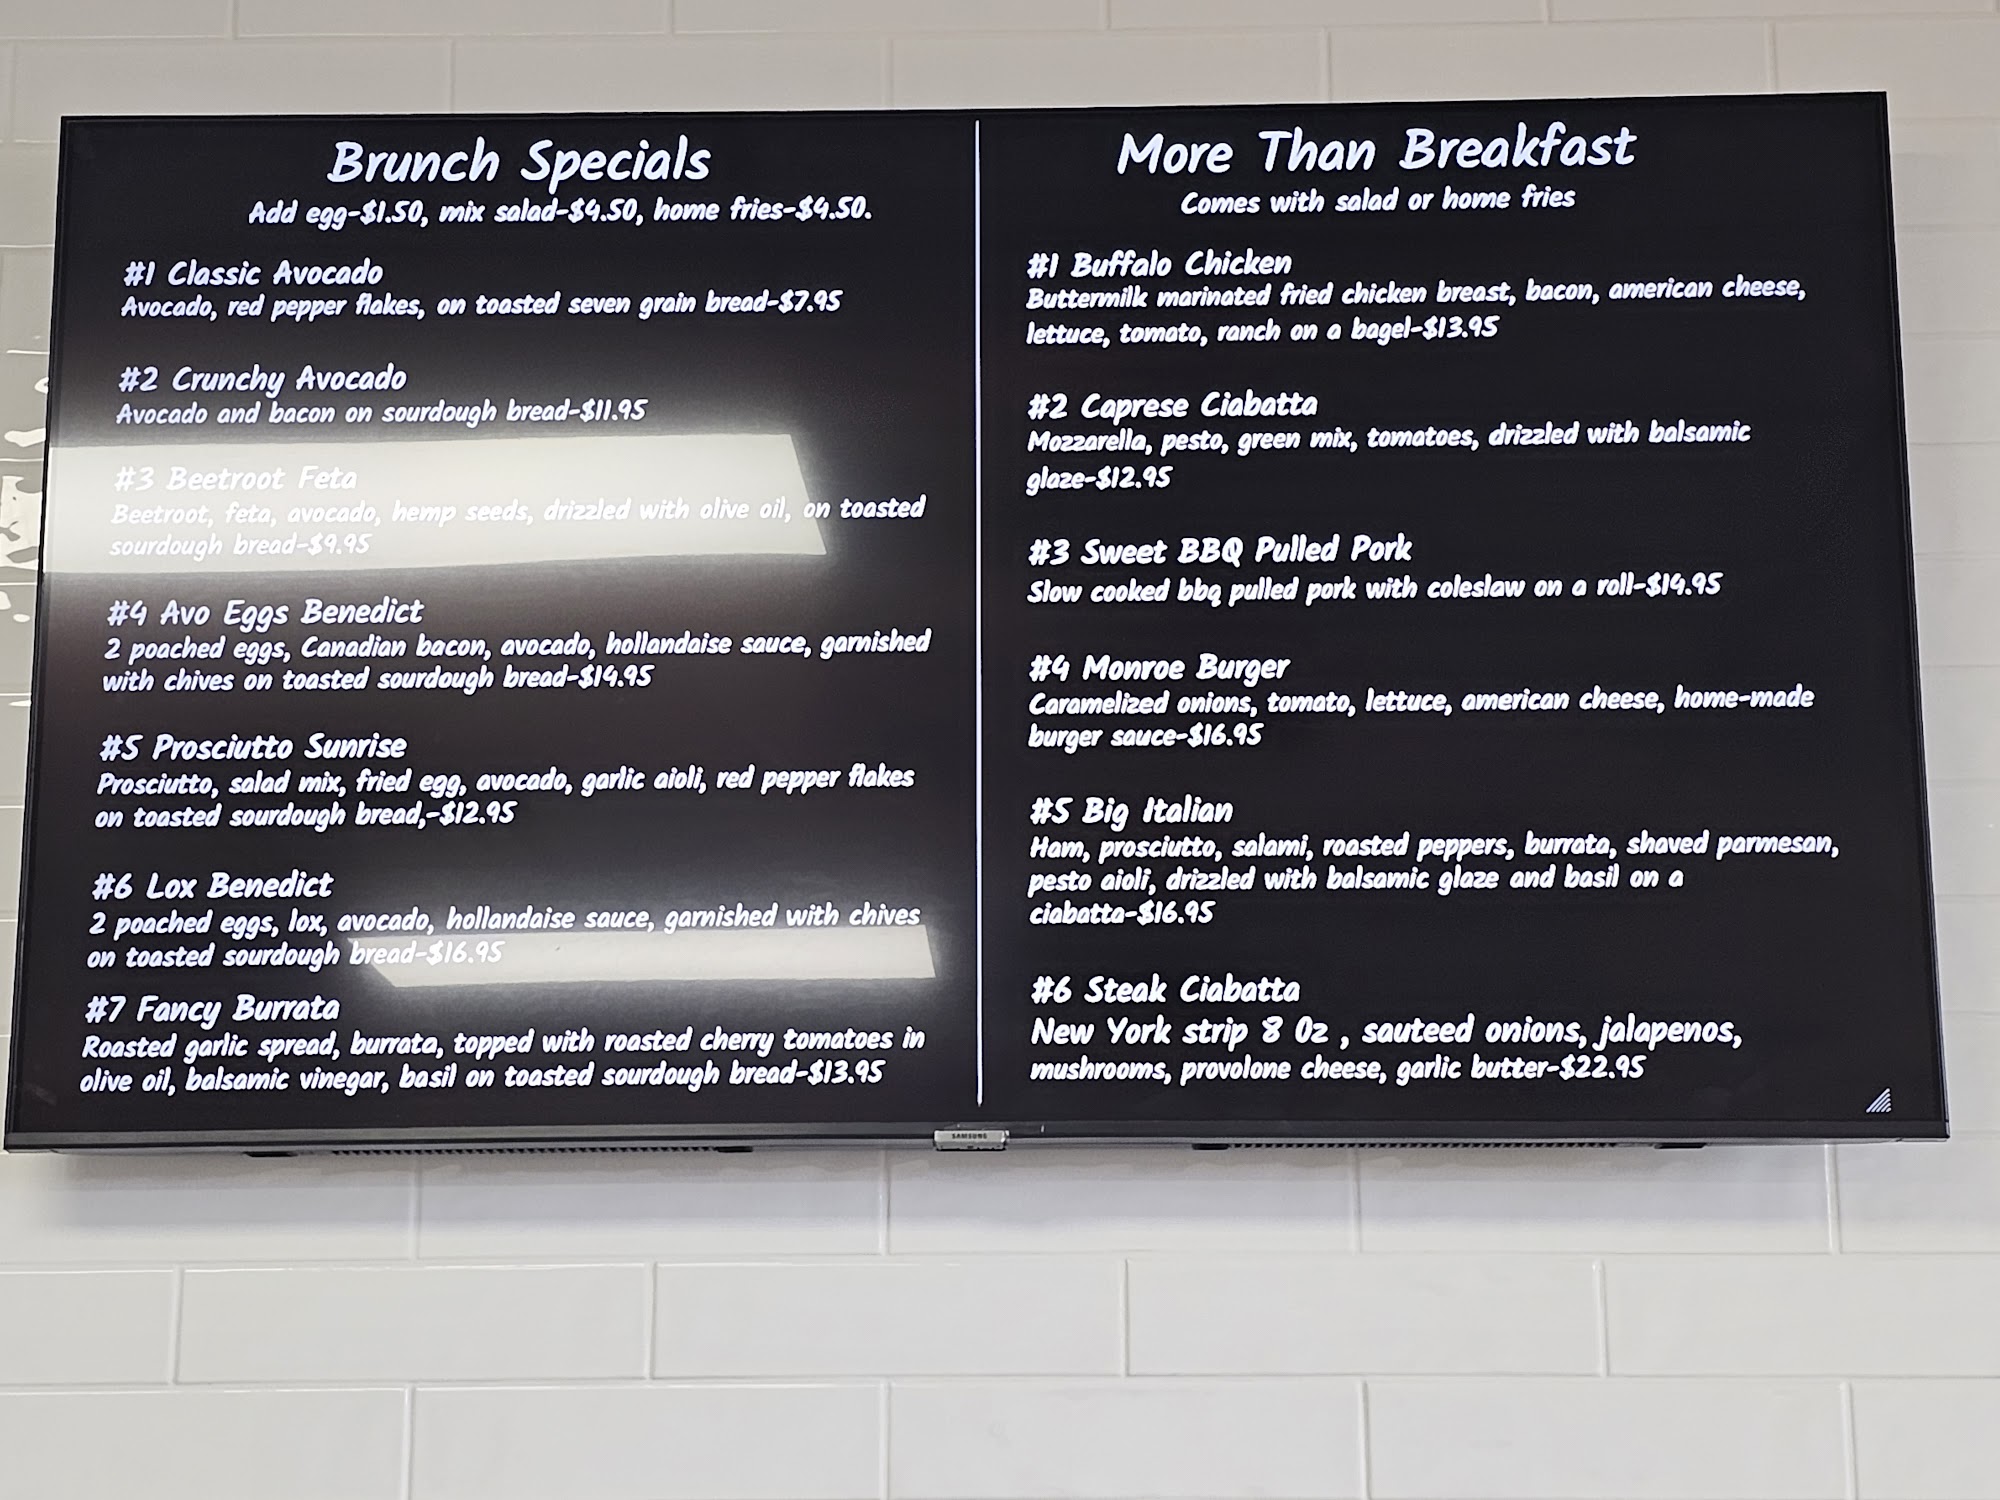 Brunch Specials
Add egg-$1.50, mix salad-$4.50, home fries-$4.50.
#1 Classic Avocado
Avocado, red pepper flakes, on toasted seven grain bread-$7.95
#2 Crunchy Avocado
Avocado and bacon on sourdough bread-$11.95
#3 Beetroot Feta
Beetroot, feta, avocado, hemp seeds, drizzled with olive oil, on toasted
sourdough bread-$9.95
#4 Avo Eggs Benedict
2 poached eggs, Canadian bacon, avocado, hollandaise sauce, garnished
with chives on toasted sourdough bread-$14.95
#5 Prosciutto Sunrise
Prosciutto, salad mix, fried egg, avocado, garlic aioli, red pepper flakes
on toasted sourdough bread,-$12.95
#6 Lox Benedict
2 poached eggs, lox, avocado, hollandaise sauce, garnished with chives
on toasted sourdough bread-$16.95
#7 Fancy Burrata
Roasted garlic spread, burrata, topped with roasted cherry tomatoes in
olive oil, balsamic vinegar, basil on toasted sourdough bread-$13.95
More Than Breakfast
Comes with salad or home fries
#1 Buffalo Chicken
Buttermilk marinated fried chicken breast, bacon, american cheese,
lettuce, tomato, ranch on a bagel-$13.95
#2 Caprese Ciabatta
Mozzarella, pesto, green mix, tomatoes, drizzled with balsamic
glaze-$12.95
#3 Sweet BBQ Pulled Pork
Slow cooked bbq pulled pork with coleslaw on a roll-$14.95
#4 Monroe Burger
Caramelized onions, tomato, lettuce, american cheese, home-made
burger sauce-$16.95
#5 Big Italian
Ham, prosciutto, salami, roasted peppers, burrata, shaved parmesan,
pesto aioli, drizzled with balsamic glaze and basil on a
ciabatta-$16.95
#6 Steak Ciabatta
New York strip 8 Oz , sauteed onions, jalapenos,
mushrooms, provolone cheese, garlic butter-$22.95
SAMSUNG